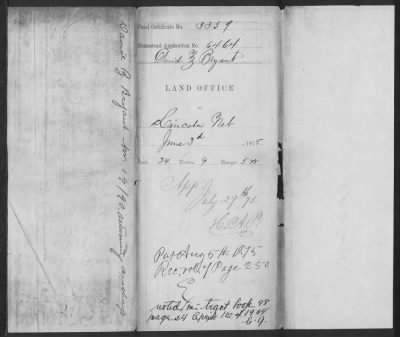 Final Certificate No. 3359
Homestead Application No. 6464
David Z Bryant
LAND OFFICE
AT
Lincoln Neb
June 3d , 1875
Sec. 34 Town. 9 Range 5 W
App
July 29th 75
Pat Aug 5th 1875
Rec vol 7 Page 250
noted in tract book 98
page 54
David Z Bryant Nov 19/90